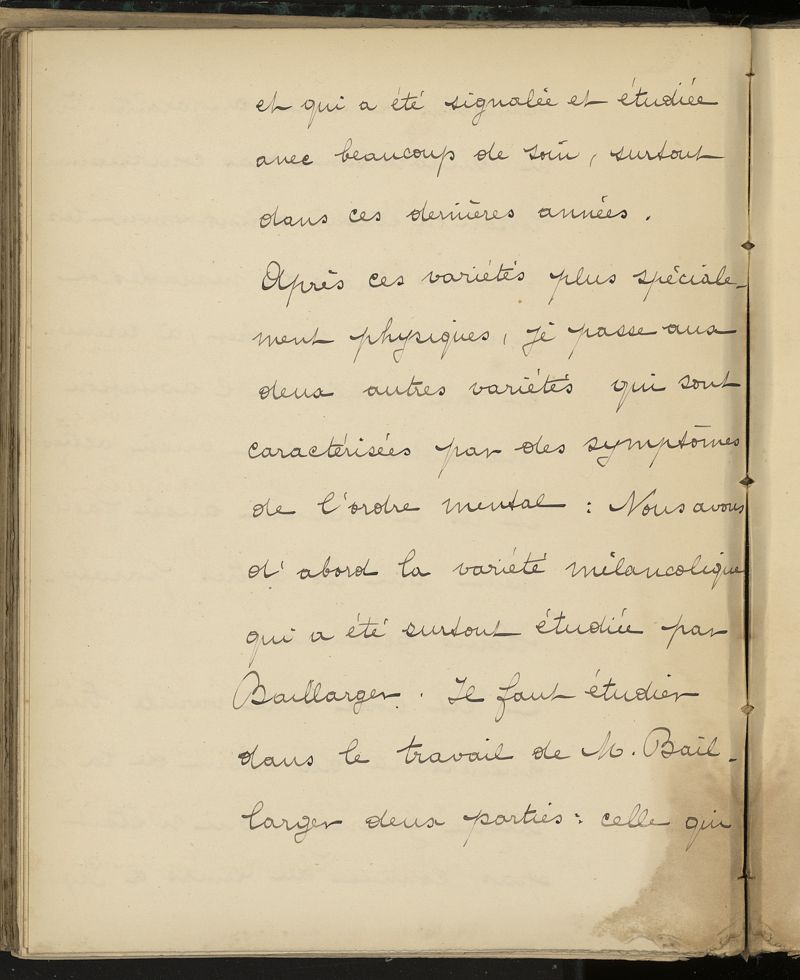 et qui a été signalée et étudiée
avec beaucoup de soin, surtout
dans ces dernières années.
Après ces variétés plus spéciale-
ment physiques, je passe aux
deux autres variétés qui sont
caractérisées par des symptômes
de l'ordre mental : Nous avons
d'abord la variété mélancolique
qui a été surtout étudiée par
Baillarger. Il faut étudier
dans le travail de M. Bail-
larger deux parties : celle qui